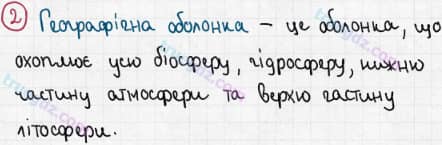 2 Географічна оболонка – це оболонка, що
охоплює усю біосферу, гідросферу, нижню
частину атмосфери та верхню частину
літосфери.